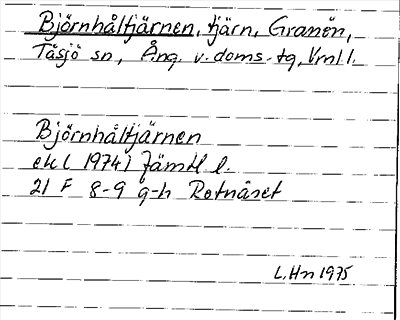 Björnhåltjärnen, tjärn, Granön,
Tåsjö sn, Ång. v. doms. tg, Vrnl l.
Björnhåltjärnen
ek ( 1974) Jämtl l.
21 F 8-9 g-h Rotnäset
L. Hn 1975